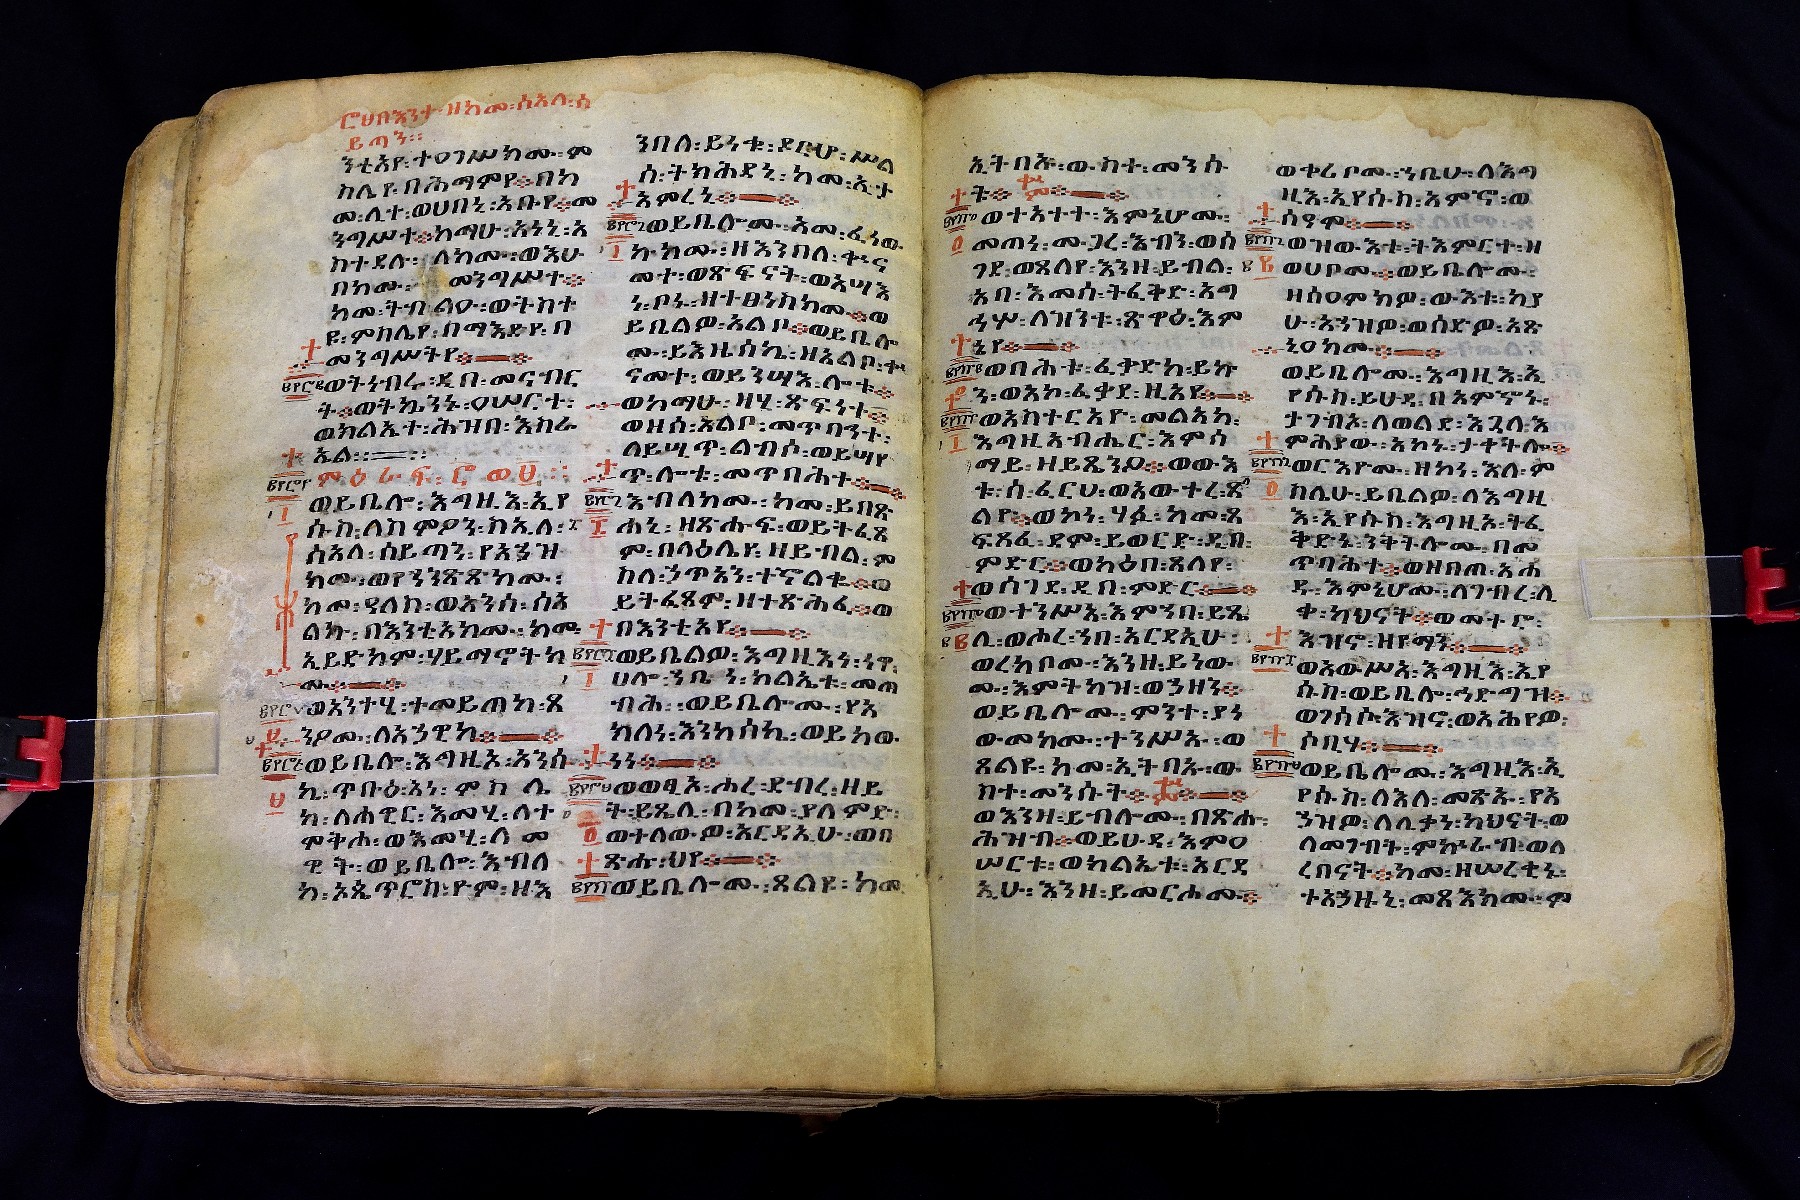 በእንተ፡ ዘከመ፡ ሰአለ፡ ሰ
ይጣን።
ንቲአየ፡ ተዐገሥክሙ፡ ም
ስሌየ፡ በሕማምየ፡ በከ
መ፡ ሊተ፡ ወሀበኒ፡ አቡየ፡ መ
ንግሥተ፡ ከማሁ፡ አነኒ፡ አ
ከተደሉ፡ ለክሙ፡ ወእሁ
በክሙ፡ መንግሥተ፡
ከመ፡ ትብልዑ፡ ወትስተ
ዩ፡ ምስሌየ፡ በማእድየ፡ በ
መንግሥትየ፡
ወትነብሩ፡ ዲበ፡ መናብር
ት፡ ወትኴንኑ፡ ዐሠርተ፡
ወክልኤተ፡ ሕዝበ፡ እስራ
ኤል፡
ምዕራፍ፡
ወይቤሎ፡ እግዚእ፡ ኢየ
ሱስ፡ ለስምዖን፡ ስኢለ፡
ሰአለ፡ ሰይጣን፡ የአኀዝ
ክሙ፡ ወየንንጽጽክሙ፡
ከመ፡ ዳለከ፡ ወአንሰ፡ ሰአ
ልኩ፡ በእንቲአክሙ፡ ከመ
ኢይድክም፡ ሃይማኖትክ
ሙ፡
ወአንተሂ፡ ተመይጠከ፡ ጸ
ንዖሙ፡ ለአኃዊከ፡
ወይቤሎ፡ እግዚኦ፡ አንሰ
ኪ፡ ጥቡዕ፡ አነ፡ ምስሌ
ከ፡ ለሐዊር፡ እመሂ፡ ለተ
ሞቅሖ፡ ወእመሂ፡ ለመ
ዊት፡ ወይቤሎ፡ እብለ
ከ፡ አጴጥሮስ፡ ዮም፡ ዘእ
ንበለ፡ ይነቁ፡ ደርሆ፡ ሥል
ሰ፡ ትክሕደኒ፡ ከመ፡ ኢታ
አምረኒ፡
ወይቤሎሙ፡ አመ፡ ፈነው
ኩክሙ፡ ዘእንበለ፡ ቍና
መት፡ ወጽፍናት፡ ወአሣእ
ን፡ ቦኑ፡ ዘተፀነስክሙ፡ ወ
ይቤልዎ፡ አልቦ፡ ወይቤሎ
ሙ፡ ይእዜሰኬ፡ ዘአልቦ፡ ቍ
ናመተ፡ ወይንሣእ፡ ሎቱ፡
ወከማሁ፡ ዘሂ፡ ጽፍነት፡
ወዘሰ፡ አልቦ፡ መጥባኅት፡
ለይሢጥ፡ ልብሶ፡ ወይሣየ
ጥ፡ ሎቱ፡ መጥባሕተ፡
እብለክሙ፡ ከመ፡ ይበጽ
ሐኒ፡ ዘጽሑፍ፡ ወይትፈጸ
ም፡ በላዕሌየ፡ ዘይብል፡ ም
ስለ፡ ኃጥአን፡ ተኆለቈ፡ ወ
ይትፌጸም፡ ዘተጽሕፈ፡ ወ
በእንቲአየ፡
ወይቤልዎ፡ እግዚእነ፡ ነዋ፡
ሀሎ፡ ንቤነ፡ ክልኤቱ፡ መጠ
ብሕ፡ ወይቤሎሙ፡ የአ
ክለነ፡ እንከሰኬ፡ ወይከው
ነነ፡
ወወፂኦ፡ ሖረ፡ ደብረ፡ ዘይ
ት፡ ይጼሊ፡ በከመ፡ ያለምድ፡
ወተለውዎ፡ አርዳኢሁ፡ ወበ
ጽሐ፡ ህየ፡
ወይቤሎሙ፡ ጸልዩ፡ ከመ
ኢትባኡ፡ ውስተ፡ መንሱ
ት፡
ወተአተተ፡ እምኔሆሙ፡
መጠነ፡ ሙጋረ፡ እብን፡ ወሰ
ገደ፡ ወጸለየ፡ እንዘ፡ ይብል፡
አባ፡ እመሰ፡ ትፈቅድ፡ አግ
ኅሦ፡ ለዝንቱ፡ ጽዋዕ፡ እም
ኔየ፡
ወባሕቱ፡ ፈቃድከ፡ ይኩ
ን፡ ወአኮ፡ ፈቃደ፡ ዚአየ፡
ወአስተርአዮ፡ መልአከ፡
እግዚአብሔር፡ እምሰ
ማይ፡ ዘይጼንዖ፡ ወውእ
ቱ፡ ሰ፡ ፈርህ፡ ወአውተረ፡ ጸ
ልየ፡ ወኮነ፡ ሃፉ፡ ከመ፡ ጸ
ፍጸፈ፡ ደም፡ ይወርድ፡ ዲበ፡
ምድር፡ ወካዕበ፡ ጸለየ፡
ወሰገደ፡ ዲበ፡ ምድር፡
ወተንሥአ፡ እምኀበ፡ ይጼ
ሊ፡ ወሖረ፡ ኀበ፡ አርዳኢሁ፡
ወረከቦሙ፡ እንዘ፡ ይነው
ሙ፡ እምትካዝ፡ ወኀዘን፡
ወይቤሎሙ፡ ምንተ፡ ያነ
ውመክሙ፡ ተንሥኡ፡ ወ
ጸልዩ፡ ከመ፡ ኢትባኡ፡ ው
ስተ፡ መንሱት፡
ወእንዘ፡ ይብሎሙ፡ በጽሑ፡
ሕዝብ፡ ወይሁዳ፡ እምዐ
ሠርቱ፡ ወክልኤቱ፡ አርዳ
ኢሁ፡ እንዘ፡ ይመርሖሙ፡
ወቀሪቦሙ፡ ኀቤሁ፡ ለእግ
ዚእ፡ ኢየሱስ፡ አምኆ፡ ወ
ሰዐሞ፡
ወዝውእቱ፡ ትእምርተ፡ ዘ
ወሀቦሙ፡ ወይቤሎሙ፡
ዘሰዐምክዎ፡ ውእቱ፡ ኪያ
ሁ፡ አኀዝዎ፡ ወሰድዎ፡ አጽ
ኒዐክሙ፡
ወይቤሎሙ፡ እግዚእ፡ ኢ
የሱስ፡ ይሁዳ፡ በአምኆኑ፡
ታገብኦ፡ ለወልደ፡ እጓለ፡ እ
ምሕያው፡ አኮኑ፡ ታቀትሎ፡
ወርእዮሙ፡ ዘኮነ፡ እለ፡ ም
ስሌሁ፡ ይቤልዎ፡ ለእግዚ
እ፡ ኢየሱስ፡ እግዚኦ፡ ትፈ
ቅድኑ፡ ንቅትሎሙ፡ በመ
ጥባሕት፡ ወዘበጠ፡ አሐ
ዱ፡ እምኔሆሙ፡ ለገብረ፡ ሊ
ቀ፡ ካህናት፡ ወመተሮ፡
እዝኖ፡ ዘየማን፡
ወአውሥአ፡ እግዚእ፡ ኢየ
ሱስ፡ ወይቤሎ፡ ኅድግዝ፡
ወገሰሶ፡ እዝኖ፡ ወአሕየዎ፡
ሶቤሃ፡
ወይቤሎሙ፡ እግዚእ፡ ኢ
የሱስ፡ ለእለ፡ መጽኡ፡ የአ
ኅዝዎ፡ ለሊቃነ፡ ካህናት፡ ወ
ለመገብት፡ ምኵራብ፡ ወለ
ረበናት፡ ከመ፡ ዘሠረቂኑ፡
ተአኃዙኒ፡ መጻእክሙ፡ ም